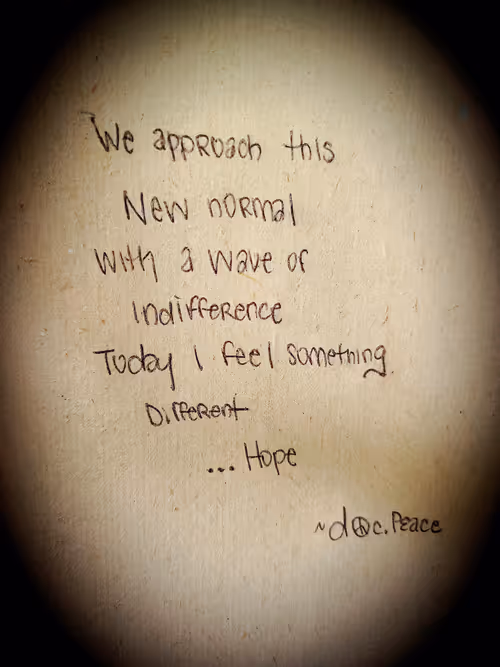 We approach this
New normal
With a wave of
Indifference
Today I feel something
Different
... Hope
~d☮c.Peace